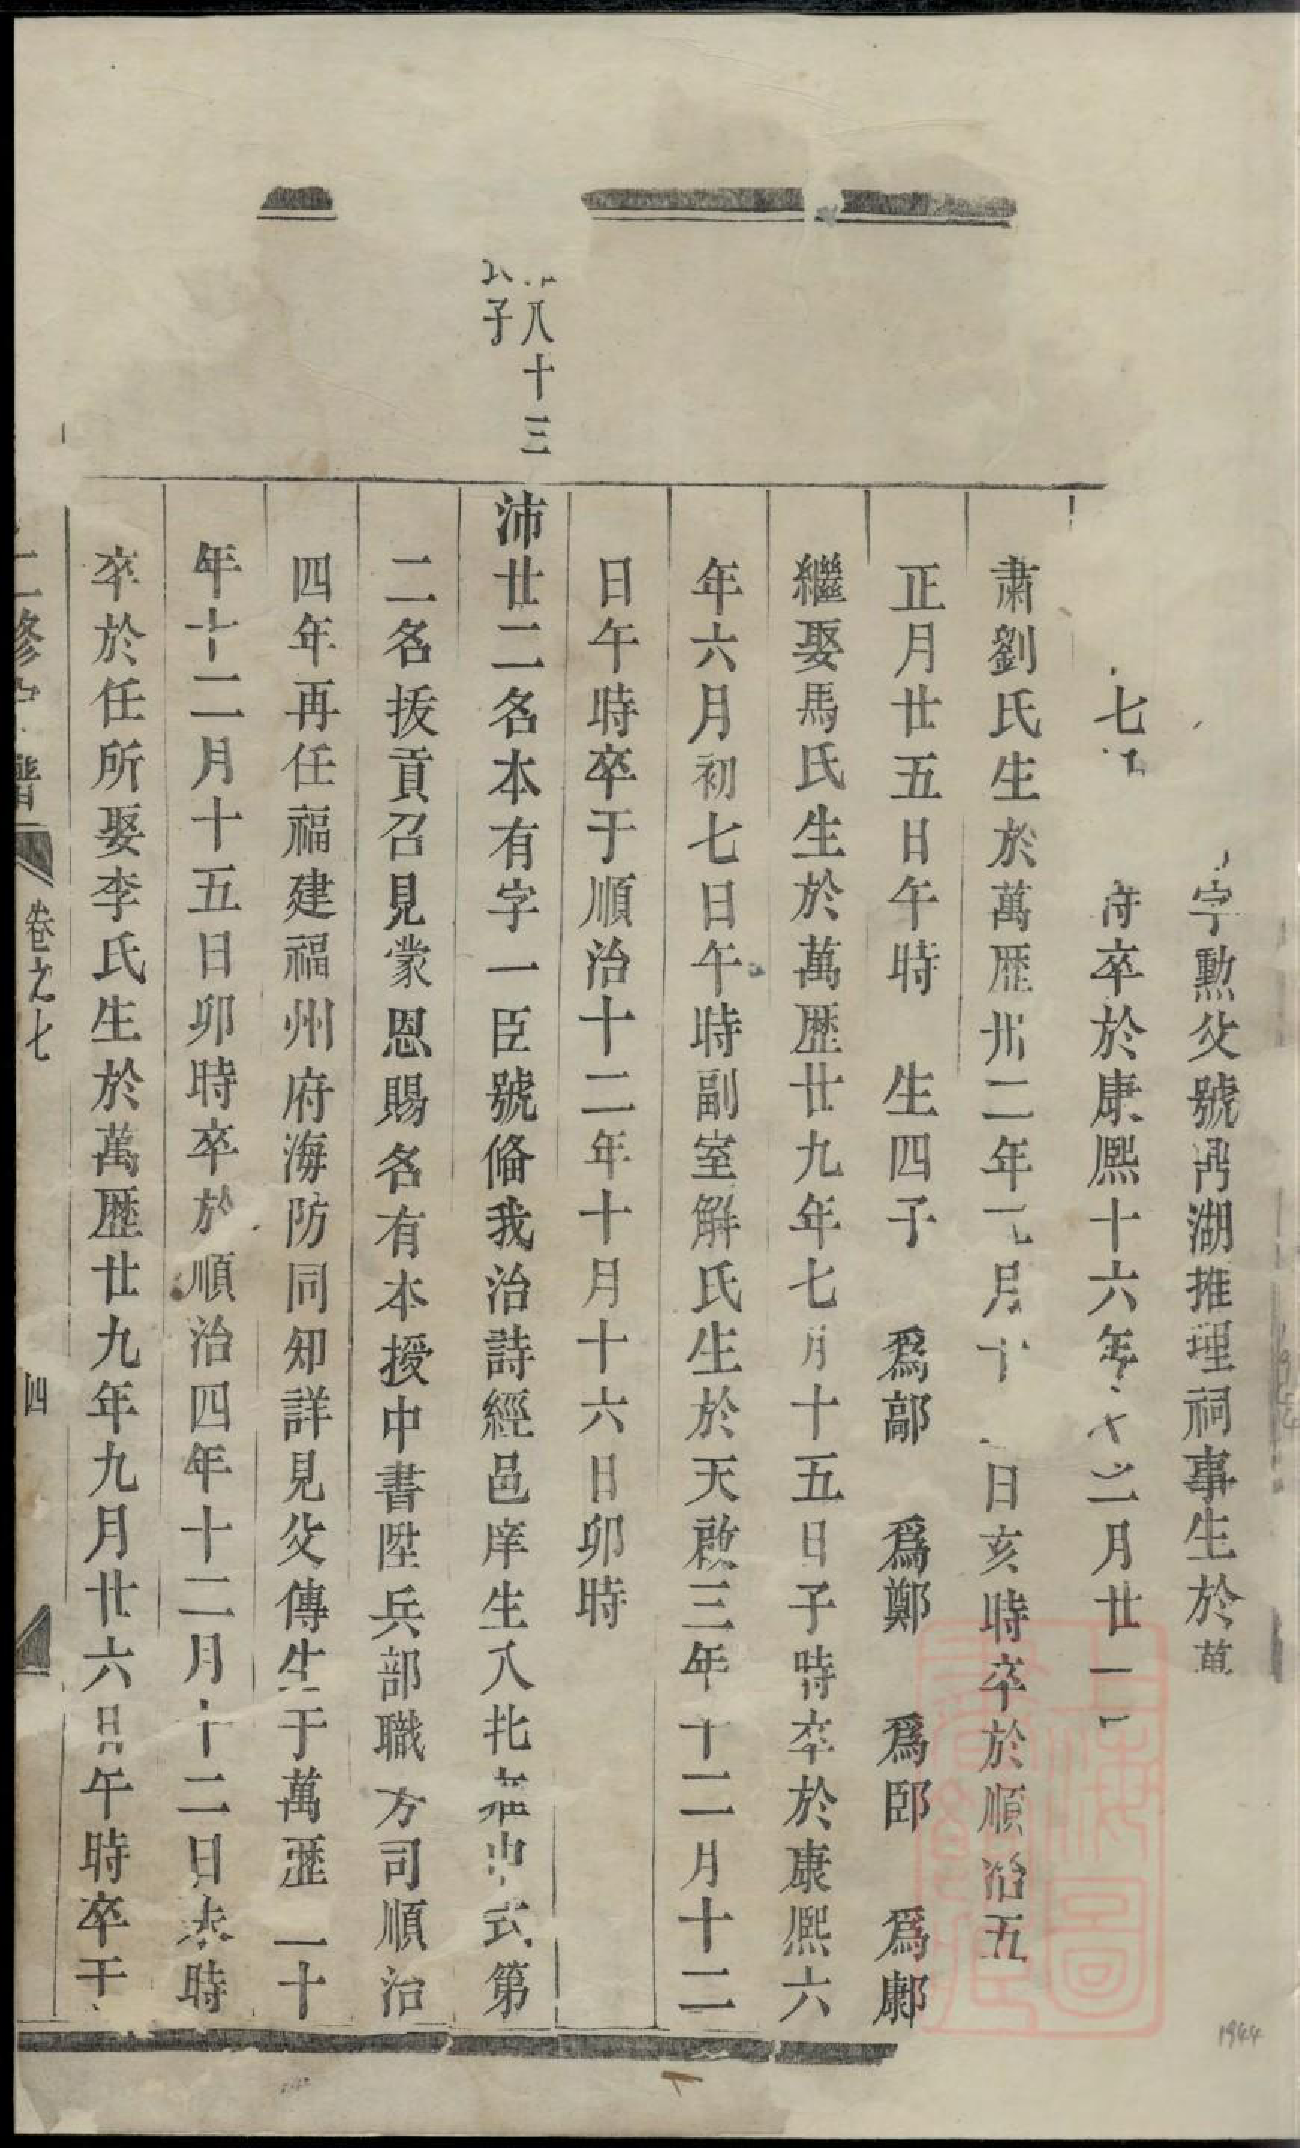 字勲父號鬲湖推理祠事生於萬
七 時卒於康熙十六年 二月廿一
肅劉氏生於萬歷卅二年 月十 日亥時卒於順治五
正月廿五日午時 生四子 爲鄗 爲鄭 爲郢 爲鄘
繼娶馬氏生於萬歷廿九年七月十五日子時卒於康熙六
年六月初七日午時副室解氏生於天啟三年十二月十二
日午時卒于順治十二年十月十六日卯時
八十三
子
沛廿二名本有字一臣號俻我治詩經邑庠生入北雍中式第
二名拔貢召見蒙恩賜名有本授中書陞兵部職方司順治
四年再任福建福州府海防同知詳見父傳生于萬歷二十
年十二月十五日卯時卒於順治四年十二月十二日 時
卒於任所娶李氏生於萬歷廿九年九月廿六日午時卒于
二修 譜
卷之七
四
上海圖書館藏
1944